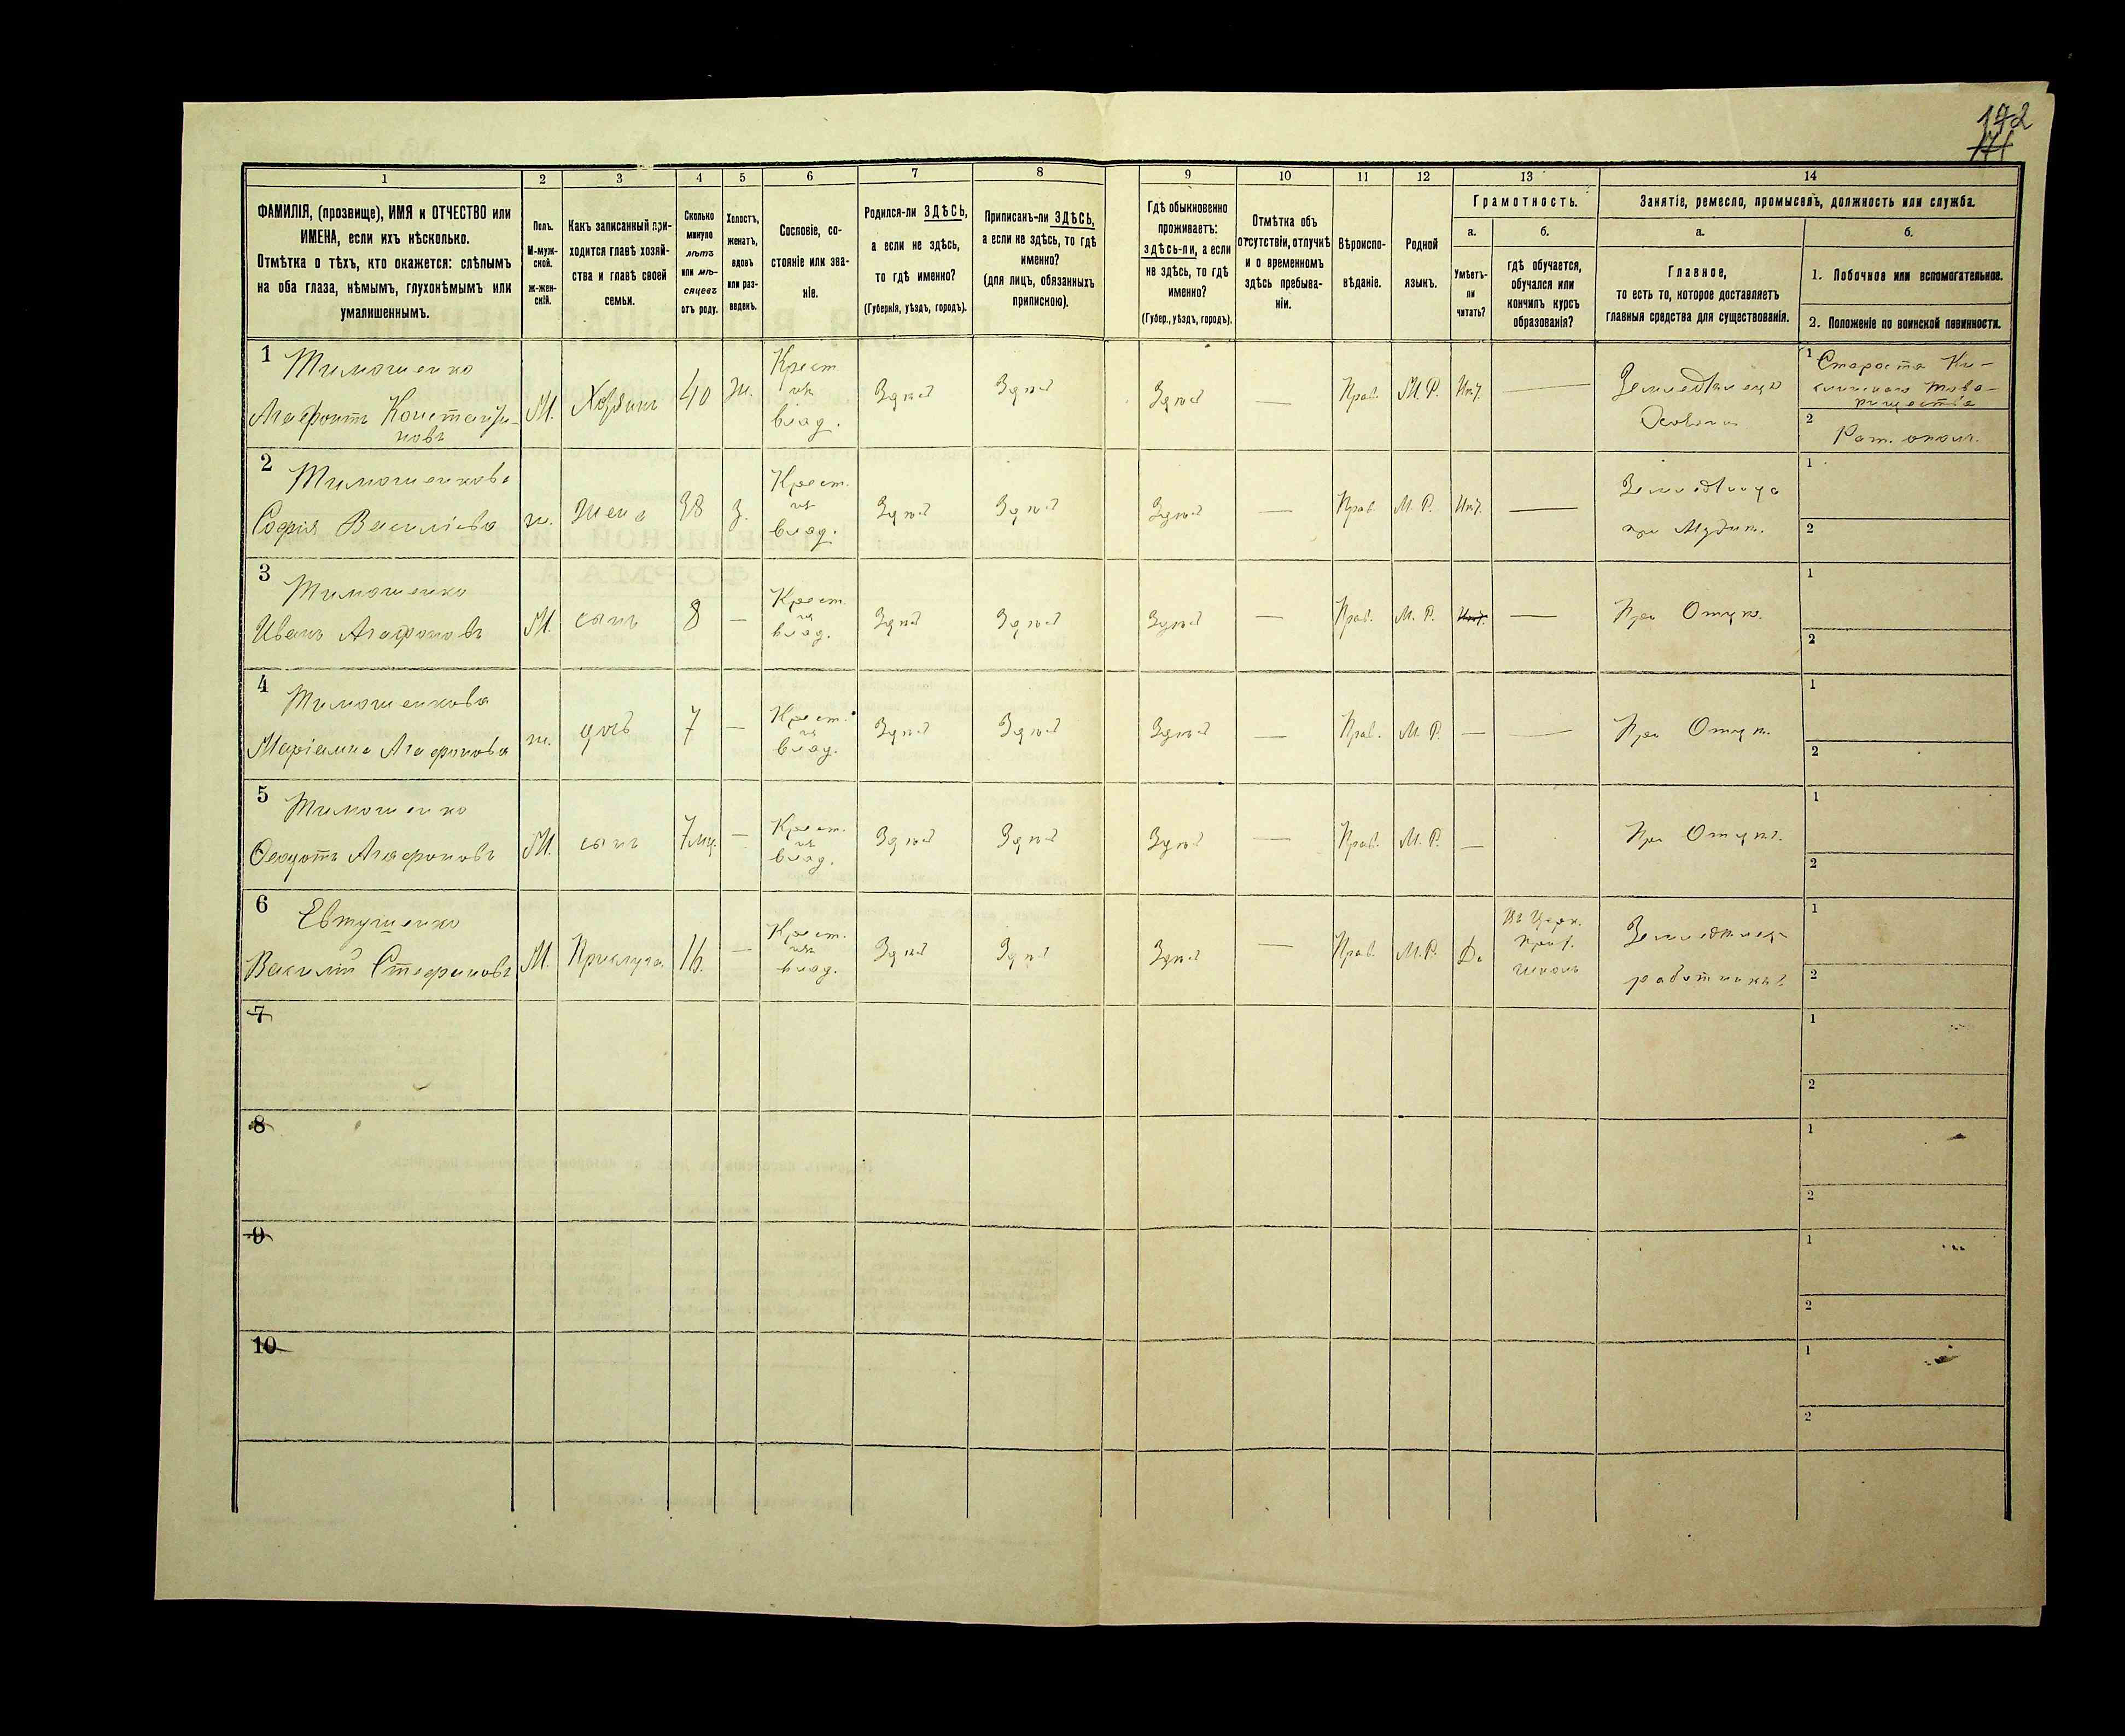 172
171
1
2
3
4
5
6
7
8
9
10
11
12
13
14
ФАМИЛІЯ, (прозвище), ИМЯ и ОТЧЕСТВО или
ИМЕНА, если ихъ нѣсколько.
Отмѣтка о тѣхъ, кто окажется: слѣпымъ
на оба глаза, нѣмымъ, глухонѣмымъ или
умалишеннымъ.
Полъ.
М-муж-
ской.
Ж-жен-
скій.
Какъ записанный при-
ходится главѣ хозяй-
ства и главѣ своей
семьи.
Сколько
минуло
лѣтъ
или мѣ-
сяцевъ
отъ роду.
Холостъ,
женатъ,
вдовъ
или раз-
веденъ.
Сословіе, со-
стояніе или зва-
ніе.
Родился-ли ЗДѢСЬ,
а если не здѣсь,
то гдѣ именно?
(Губернія, уѣздъ, городъ).
Приписанъ-ли ЗДѢСЬ,
а если не здѣсь, то гдѣ
именно?
(для лицъ, обязанныхъ
припискою).
Гдѣ обыкновенно
проживаетъ:
здѣсь-ли, а если
не здѣсь, то гдѣ
именно?
(Губер., уѣздъ, городъ).
Отмѣтка объ
отсутствіи, отлучкѣ
и о временномъ
здѣсь пребыва-
ніи.
Вѣроиспо-
вѣданіе.
Родной
языкъ.
Грамотность.
а.
Умѣетъ-
ли
читать?
б.
гдѣ обучается,
обучался или
кончилъ курсъ
образованія?
Занятіе, ремесло, промыселъ, должность или служба.
а.
Главное,
то есть то, которое доставляетъ
главныя средства для существованія.
б.
1. Побочное или вспомогательное.
2. Положеніе по воинской повинности.
1
Тимошенко
Агафонъ Константи-
новъ
М.
Хозяинъ
40
Ж.
Крест.
влад.
Здѣсь
Здѣсь
Здѣсь
—
Прав.
М. Р.
Нѣт.
—
Земледѣлецъ
1
Староста
това-
рищества
2
Рат. ополч.
2
Тимошенкова
Софія Василіева
ж.
Жена
38
З.
Крест.
влад.
Здѣсь
Здѣсь
Здѣсь
—
Прав.
М. Р.
Нѣт.
—
при Мужѣ.
1
2
3
Тимошенко
Иванъ Агафоновъ
М.
сынъ
8
—
Крест.
влад.
Здѣсь
Здѣсь
Здѣсь
—
Прав.
М. Р.
Нѣт.
—
При Отцѣ.
1
2
4
Тимошенкова
Маріамна Агафонова
ж.
дочь
7
—
Крест.
влад.
Здѣсь
Здѣсь
Здѣсь
—
Прав.
М. Р.
—
—
При Отцѣ.
1
2
5
Тимошенко
Ѳеодотъ Агафоновъ
М.
сынъ
7 мц.
—
Крест.
влад.
Здѣсь
Здѣсь
Здѣсь
—
Прав.
М. Р.
—
При Отцѣ.
1
2
6
Евтушенко
Василій Стефановъ
М.
Прислуга
16.
—
Крест.
влад.
Здѣсь
Здѣсь
Здѣсь
—
Прав.
М. Р.
Да
Въ Церк.
прих.
школѣ
Земледѣлец
работникъ
1
2
7
1
2
8
1
2
9
1
2
10
1
2